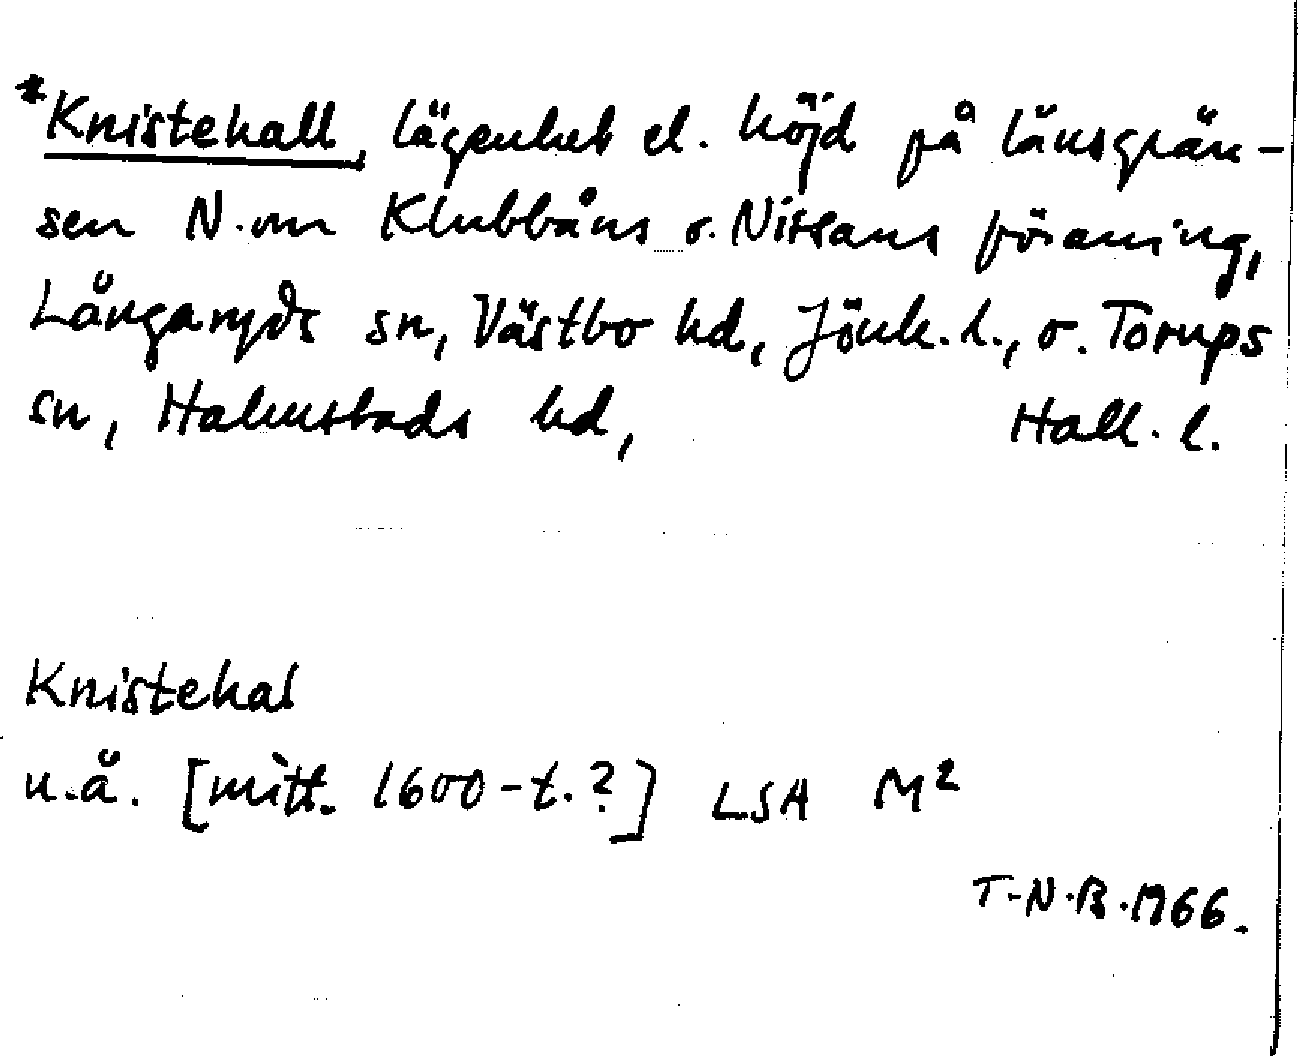 *Knistehall, lägenhet el. höjd på länsgrän-
sen N. om Klubbåns o. Nissans förening,
Långaryds sn, Västbo hd, Jönk. l., o. Torups
sn, Halmstads hd, Hall. l.
Knistehal
u.å. [mitt. 1600-t.?] LSA M²
T-N.B. 1966.